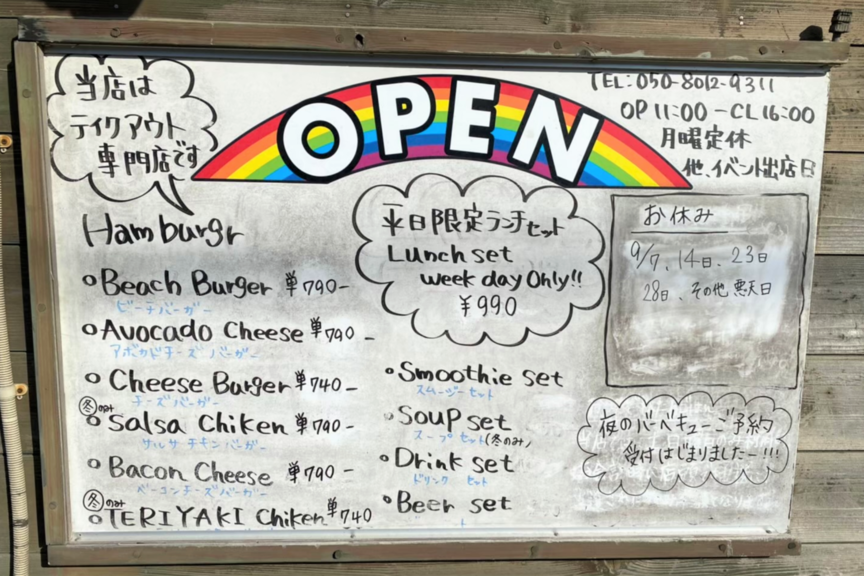 当店は
テイクアウト
専門店です
OPEN
TEL:050-8012-9311
OP 11:00-CL 16:00
月曜定休
他、イベント出店日
Hamburgr
Beach Burger 単790-
ビーチバーガー
Avocado Cheese 単790-
アボカドチーズバーガー
Cheese Burger 単740-
チーズバーガー
冬のみ
Salsa Chiken 単790-
サルサチキンバーガー
Bacon Cheese 単790-
ベーコンチーズバーガー
冬のみ
TERIYAKI Chiken 単740
平日限定ランチセット
Lunch set
week day Only!!
¥990
Smoothie set
スムージーセット
Soup set
スープセット(冬のみ)
Drink set
ドリンク セット
Beer set
お休み
9/7、14日、23日
28日、その他 悪天日
夜のバーベキューご予約
受付はじまりましたー!!!